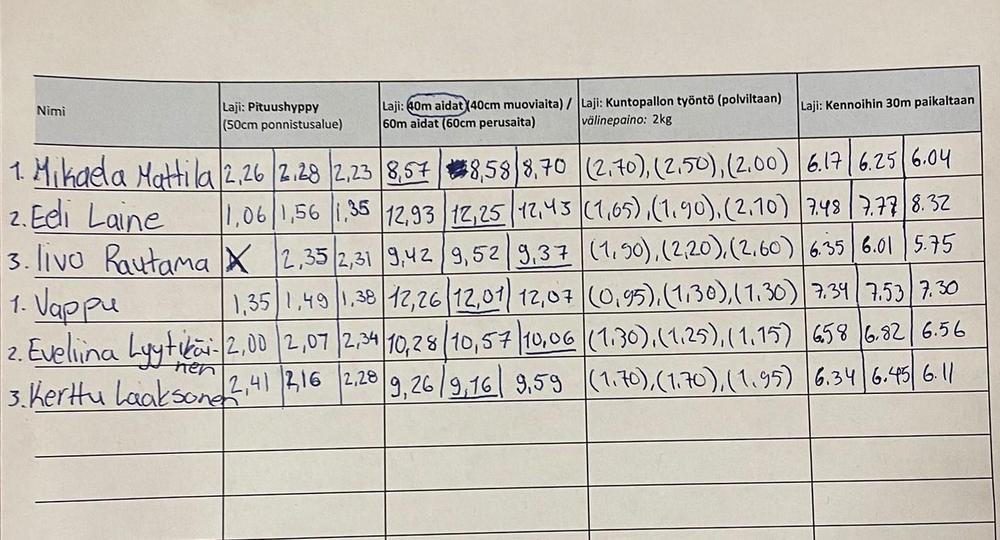 Nimi
Laji: Pituushyppy
(50cm ponnistusalue)
Laji: 40m aidat (40cm muoviaita) /
60m aidat (60cm perusaita)
Laji: Kuntopallon työntö (polviltaan)
välinepaino: 2kg
Laji: Kennoihin 30m paikaltaan
1. Mikaela Mattila 2,26 2,28 2,23 8,57 8,58 8,70 (2,70), (2,50), (2,00) 6.17 6.25 6.04
2. Eeli Laine 1,06 1,56 1,35 12,93 12,25 12,43 (1,65), (1,90), (2,10) 7.48 7.77 8.32
3. Iivo Rautama X 2,35 2,31 9,42 9,52 9,37 (1,90), (2,20), (2,60) 6.35 6.01 5.75
1. Vappu 1,35 1,49 1,38 12,26 12,01 12,07 (0,95), (1,30), (1,30) 7.34 7.53 7.30
2. Eveliina Lyytikäi- 2,00 2,07 2,34 10,28 10,57 10,06 (1,30), (1,25), (1,15) 6.58 6.82 6.56
nen
3. Kerttu Laaksonen 2,41 2,16 2,28 9,26 9,16 9,59 (1,70), (1,70), (1,95) 6.34 6.45 6.11